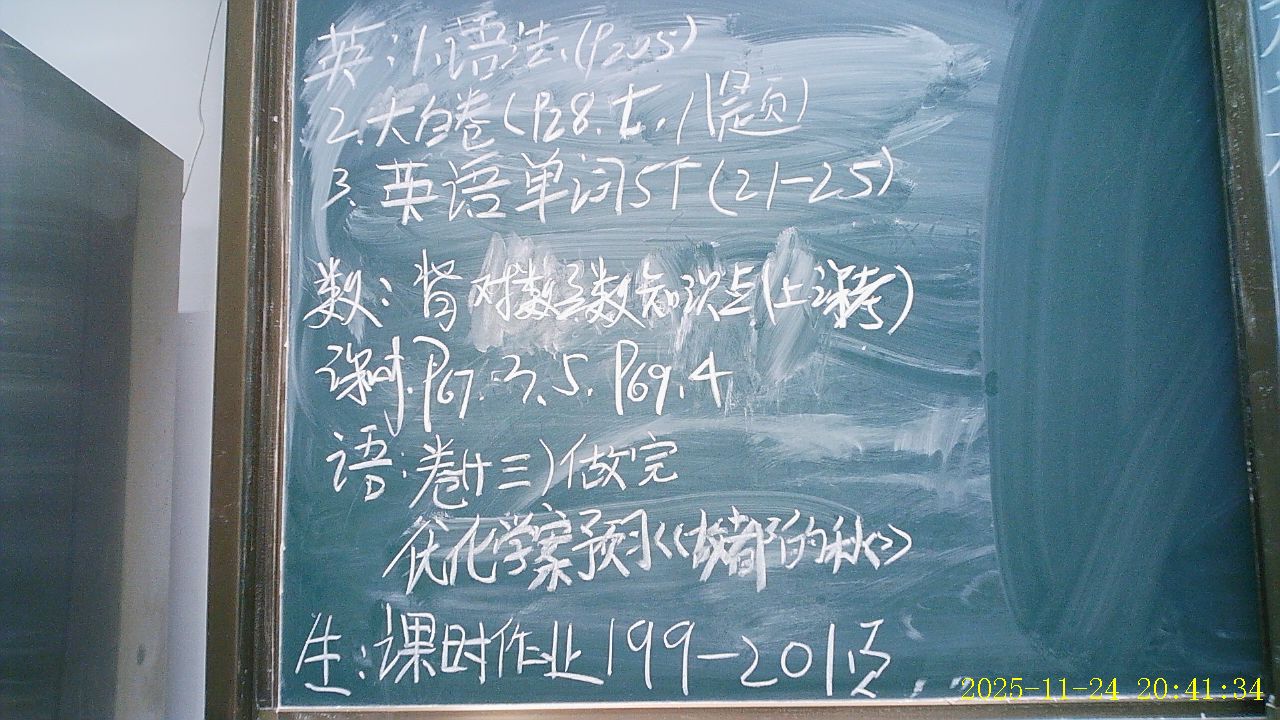 英:1.语法.(P205)
2.大白卷(P28.七.八题)
3.英语单词5T(21-25)
数:背对数函数知识点(上课考)
课时.P67.3、5.P69.4
语:卷(十三)做完
优化学案预习《故都的秋》
生:课时作业199-201页
2025-11-24 20:41:34